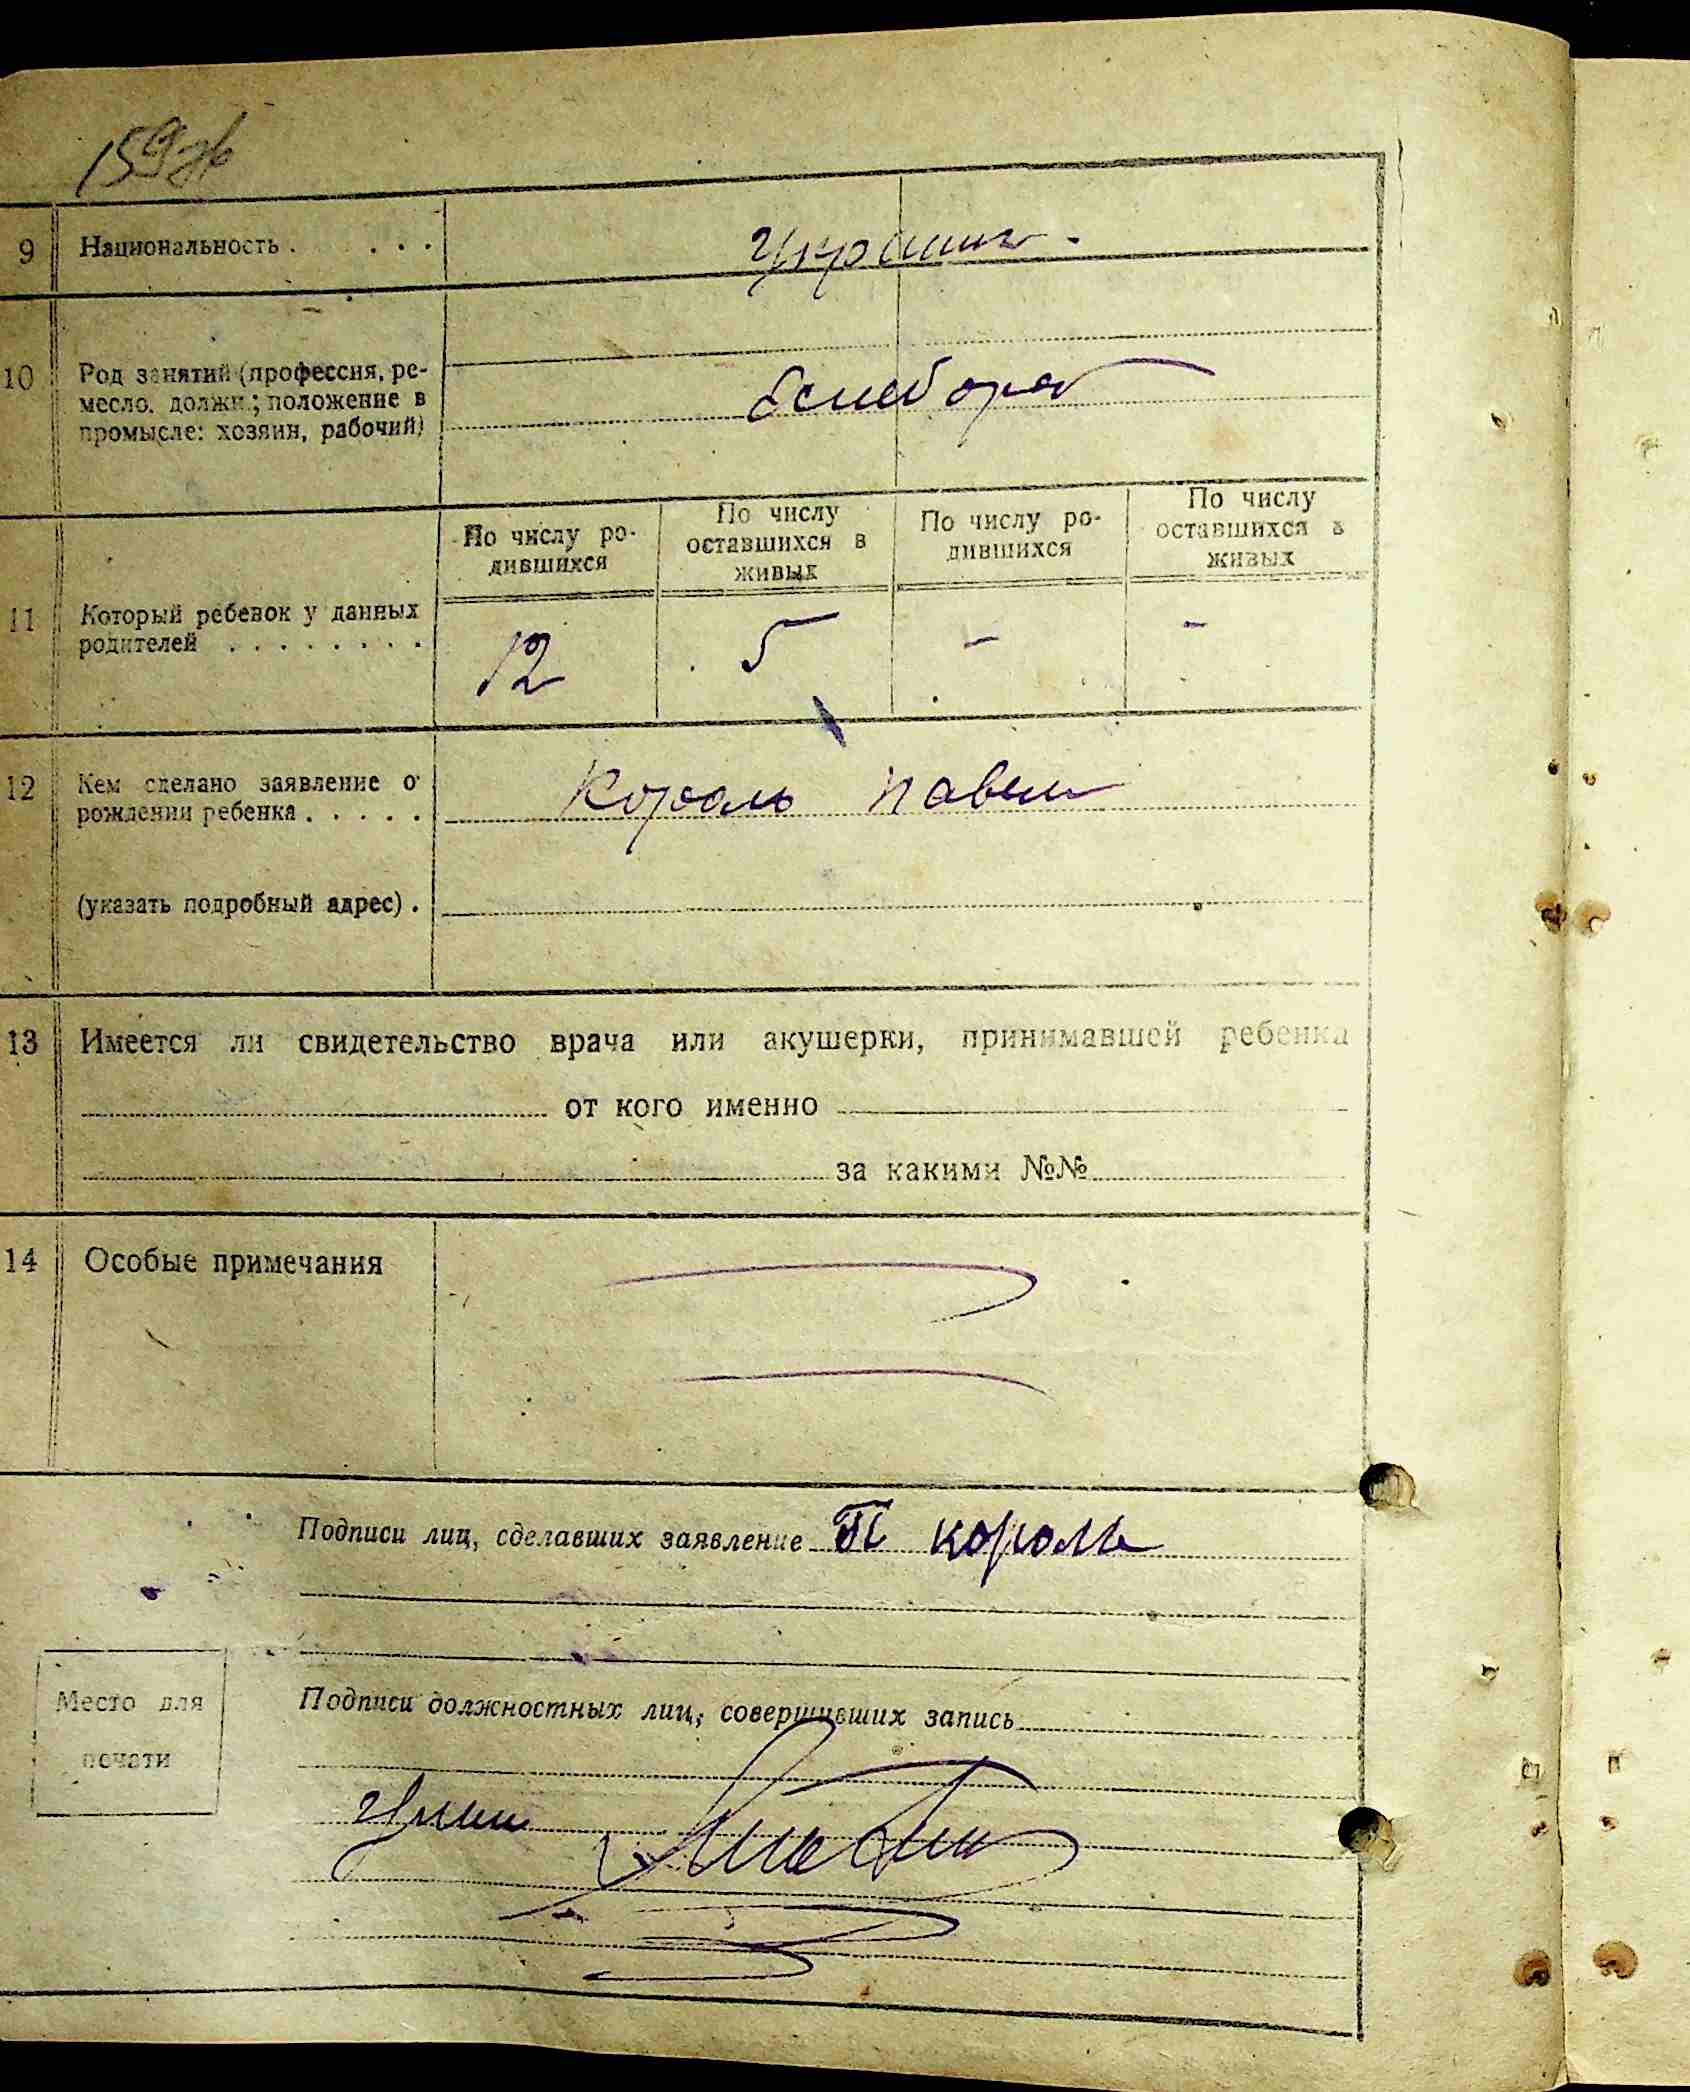 159
9 Национальность . . . . Украин.
10 Род занятий (профессия, ре-
месло, должн.; положение в
промысле: хозяин, рабочий)
хлебороб
По числу ро-
дившихся
По числу
оставшихся в
живых
По числу ро-
дившихся
По числу
оставшихся в
живых
11 Который ребенок у данных
родителей . . . . . . . .
12 5 - -
12 Кем сделано заявление о
рождении ребенка . . . . . Король Павел
(указать подробный адрес) .
13 Имеется ли свидетельство врача или акушерки, принимавшей ребенка
от кого именно
за какими №№
14 Особые примечания
Подписи лиц, сделавших заявление П Король
Место для
печати
Подписи должностных лиц, совершивших запись